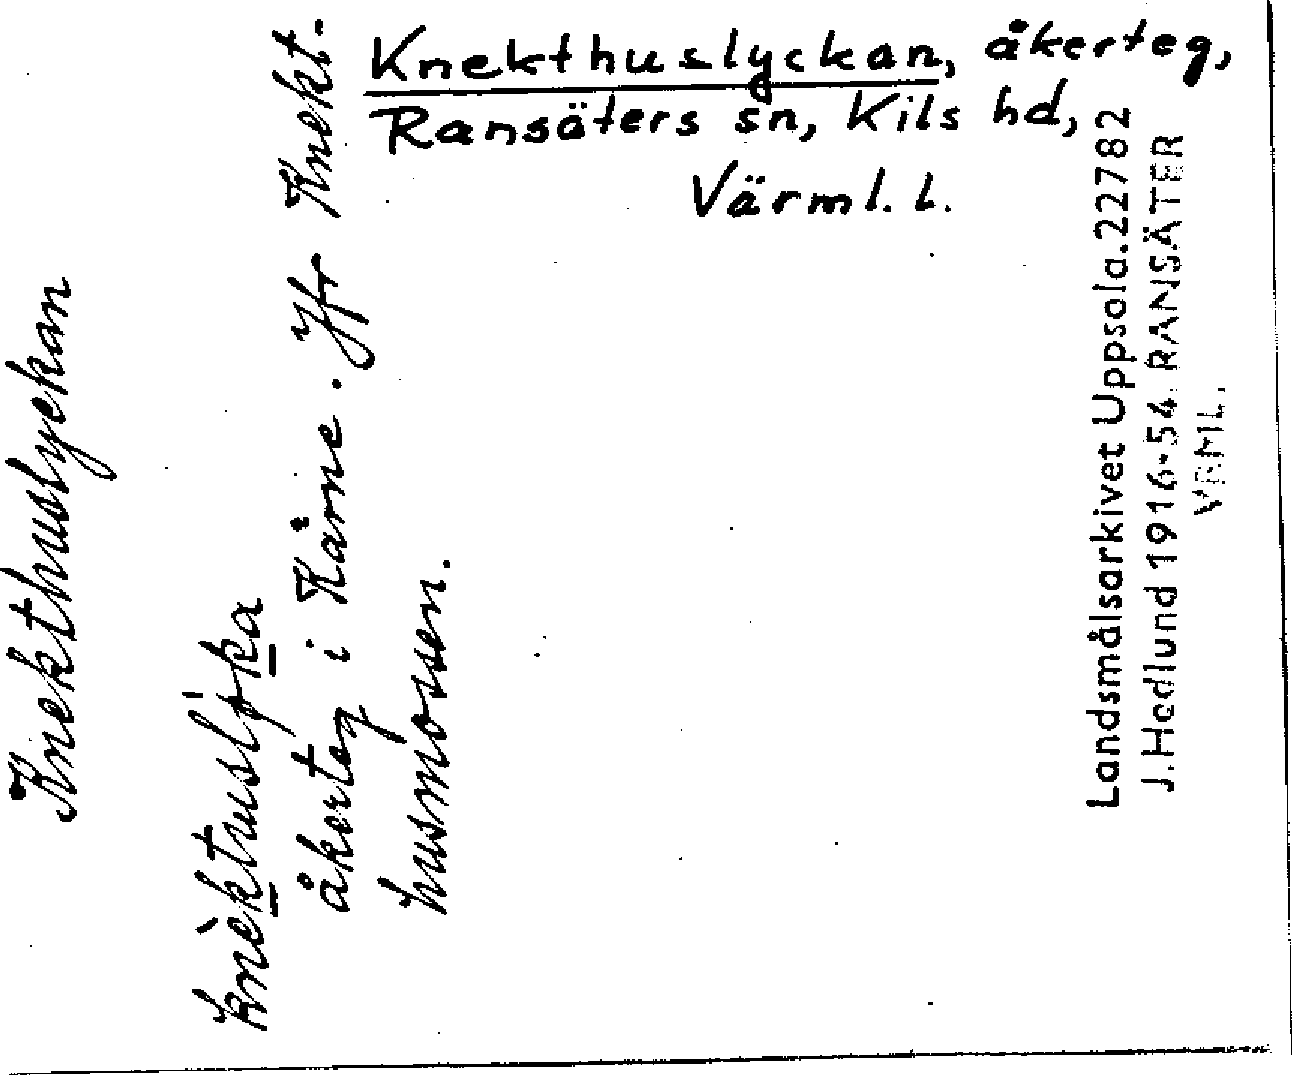 Knekthuslyckan, åkerteg,
Ransäters sn, Kils hd,
Värml. L.
Knekthuslyckan
åkerteg i Kärne. Jfr Knekt-
husmossen.
Landsmålsarkivet Uppsala.22782
J.Hedlund 1916-54. RANSÄTER
VRML.